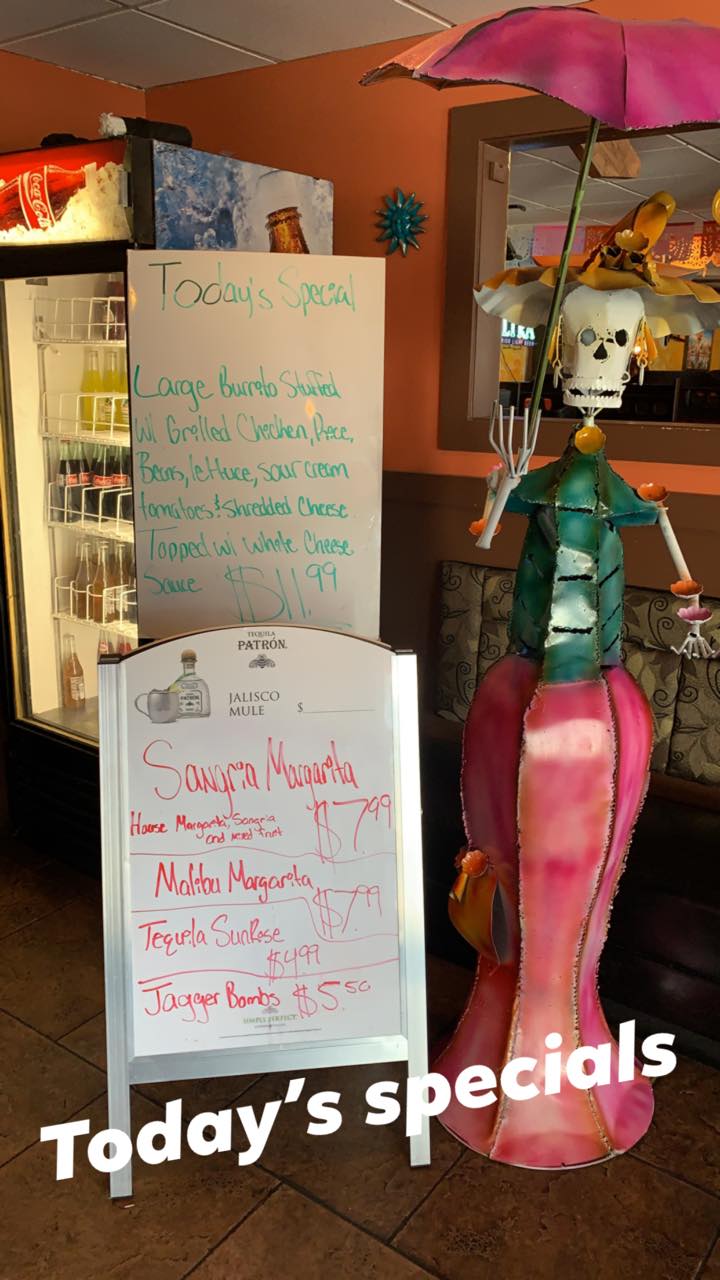 Coca-Cola
Today's Special
Large Burrito Stuffed
w/ Grilled Chechen, Riece,
Beans, lettuce, sour cream
tomatoes & Shredded Cheese
Topped w/ White Cheese
Sauce $11.99
TEQUILA
PATRÓN
JALISCO
MULE $
Sangria Margarita
House Margarita, Sangria
and mixed fruit $7.99
Malibu Margarita
$7.99
Tequila SunRose
$4.99
Jagger Bombs $5.50
SIMPLY PERFECT.
Today's specials